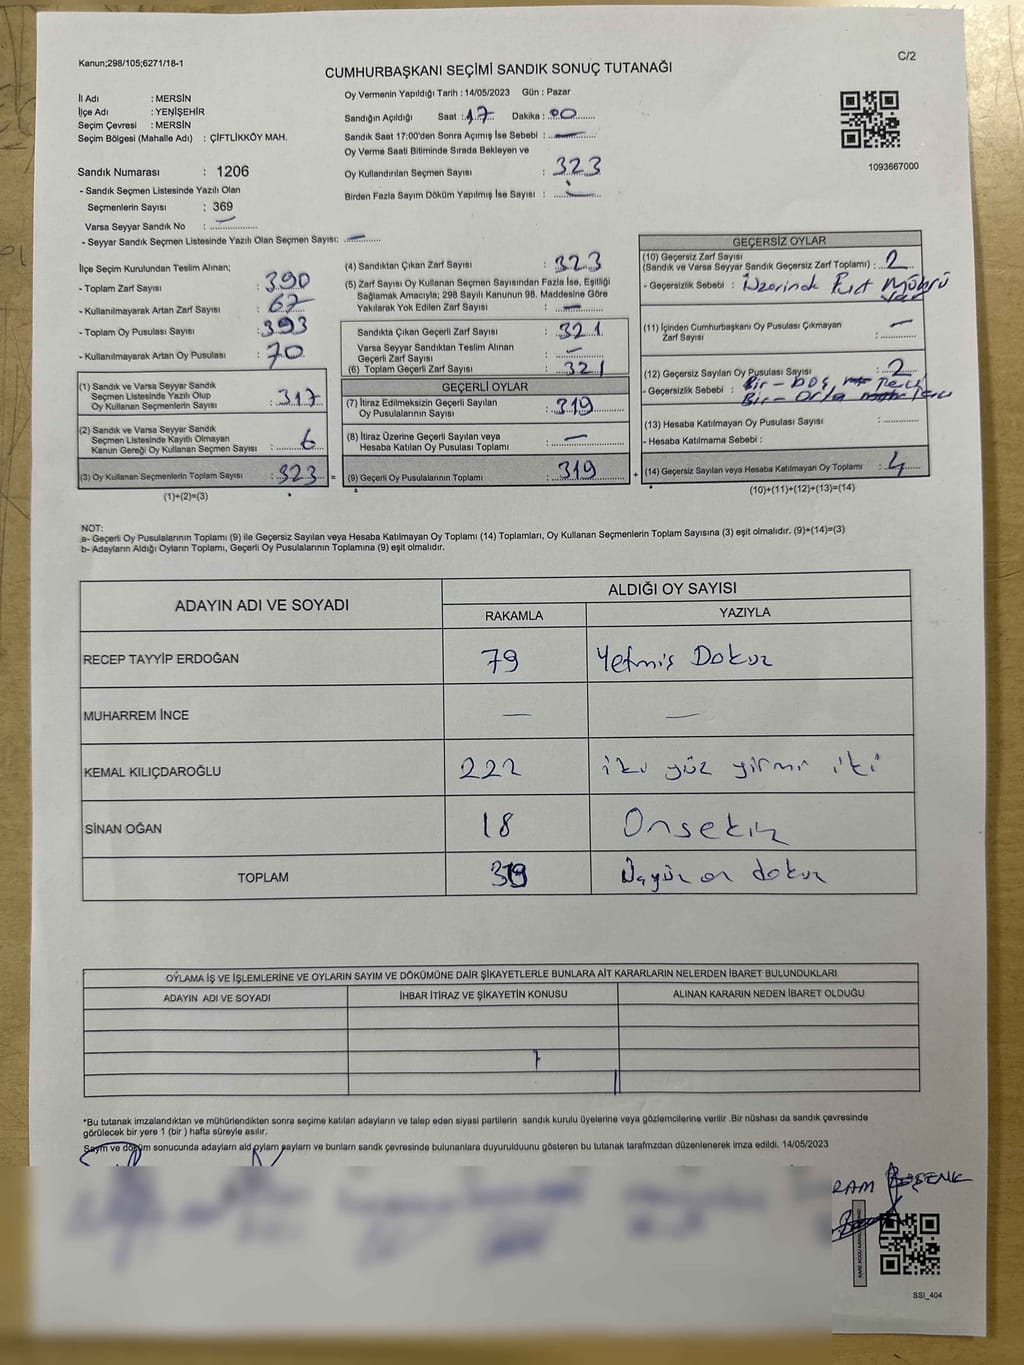 Kanun;298/105;6271/18-1
C/2
CUMHURBAŞKANI SEÇİMİ SANDIK SONUÇ TUTANAĞI
İl Adı : MERSİN
İlçe Adı : YENİŞEHİR
Seçim Çevresi : MERSİN
Seçim Bölgesi (Mahalle Adı) : ÇİFTLİKKÖY MAH.
Oy Vermenin Yapıldığı Tarih : 14/05/2023 Gün : Pazar
Sandığın Açıldığı Saat : 17 Dakika : 00
Sandık Saat 17:00'den Sonra Açımış İse Sebebi : —
Oy Verme Saati Bitiminde Sırada Bekleyen ve
Oy Kullandırılan Seçmen Sayısı : 323
Birden Fazla Sayım Döküm Yapılmış İse Sayısı : —
1093667000
Sandık Numarası : 1206
- Sandık Seçmen Listesinde Yazılı Olan
Seçmenlerin Sayısı : 369
Varsa Seyyar Sandık No : —
- Seyyar Sandık Seçmen Listesinde Yazılı Olan Seçmen Sayısı: —
İlçe Seçim Kurulundan Teslim Alınan;
- Toplam Zarf Sayısı : 390
- Kullanılmayarak Artan Zarf Sayısı : 67
- Toplam Oy Pusulası Sayısı : 393
- Kullanılmayarak Artan Oy Pusulası : 70
(1) Sandık ve Varsa Seyyar Sandık
Seçmen Listesinde Yazılı Olup
Oy Kullanan Seçmenlerin Sayısı : 317
(2) Sandık ve Varsa Seyyar Sandık
Seçmen Listesinde Kayıtlı Olmayan
Kanun Gereği Oy Kullanan Seçmen Sayısı : 6
(3) Oy Kullanan Seçmenlerin Toplam Sayısı : 323 =
(1)+(2)=(3)
(4) Sandıktan Çıkan Zarf Sayısı : 323
(5) Zarf Sayısı Oy Kullanan Seçmen Sayısından Fazla İse, Eşitliği
Sağlamak Amacıyla; 298 Sayılı Kanunun 98. Maddesine Göre
Yakılarak Yok Edilen Zarf Sayısı : —
Sandıkta Çıkan Geçerli Zarf Sayısı : 321
Varsa Seyyar Sandıktan Teslim Alınan
Geçerli Zarf Sayısı : —
(6) Toplam Geçerli Zarf Sayısı : 321
GEÇERLİ OYLAR
(7) İtiraz Edilmeksizin Geçerli Sayılan
Oy Pusulalarının Sayısı : 319
(8) İtiraz Üzerine Geçerli Sayılan veya
Hesaba Katılan Oy Pusulası Toplamı : —
(9) Geçerli Oy Pusulalarının Toplamı : 319 +
GEÇERSİZ OYLAR
(10) Geçersiz Zarf Sayısı
(Sandık ve Varsa Seyyar Sandık Geçersiz Zarf Toplamı) : 2
- Geçersizlik Sebebi : Üzerinde Mührü var
(11) İçinden Cumhurbaşkanı Oy Pusulası Çıkmayan
Zarf Sayısı : —
(12) Geçersiz Sayılan Oy Pusulası Sayısı : 2
- Geçersizlik Sebebi : Bir - boş,
Bir - Orta
(13) Hesaba Katılmayan Oy Pusulası Sayısı :
- Hesaba Katılmama Sebebi :
(14) Geçersiz Sayılan veya Hesaba Katılmayan Oy Toplamı : 4
(10)+(11)+(12)+(13)=(14)
NOT:
a- Geçerli Oy Pusulalarının Toplamı (9) ile Geçersiz Sayılan veya Hesaba Katılmayan Oy Toplamı (14) Toplamları, Oy Kullanan Seçmenlerin Toplam Sayısına (3) eşit olmalıdır. (9)+(14)=(3)
b- Adayların Aldığı Oyların Toplamı, Geçerli Oy Pusulalarının Toplamına (9) eşit olmalıdır.
ADAYIN ADI VE SOYADI ALDIĞI OY SAYISI
RAKAMLA YAZIYLA
RECEP TAYYİP ERDOĞAN 79 Yetmiş Dokuz
MUHARREM İNCE — —
KEMAL KILIÇDAROĞLU 222 iki yüz yirmi iki
SİNAN OĞAN 18 Onsekiz
TOPLAM 319 Üçyüz on dokuz
OYLAMA İŞ VE İŞLEMLERİNE VE OYLARIN SAYIM VE DÖKÜMÜNE DAİR ŞİKAYETLERLE BUNLARA AİT KARARLARIN NELERDEN İBARET BULUNDUKLARI
ADAYIN ADI VE SOYADI İHBAR İTİRAZ VE ŞİKAYETİN KONUSU ALINAN KARARIN NEDEN İBARET OLDUĞU
*Bu tutanak imzalandıktan ve mühürlendikten sonra seçime katılan adayların ve talep eden siyasi partilerin sandık kurulu üyelerine veya gözlemcilerine verilir .Bir nüshası da sandık çevresinde
görülecek bir yere 1 (bir ) hafta süreyle asılır.
Sayım ve döküm sonucunda adayların ald oyların sayların ve bunların sandk çevresinde bulunanlara duyurulduunu gösteren bu tutanak tarafmzdan düzenlenerek imza edildi. 14/05/2023
SSI_404